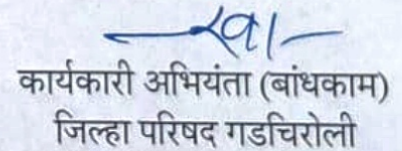 स्वा/-
कार्यकारी अभियंता (बांधकाम)
जिल्हा परिषद गडचिरोली